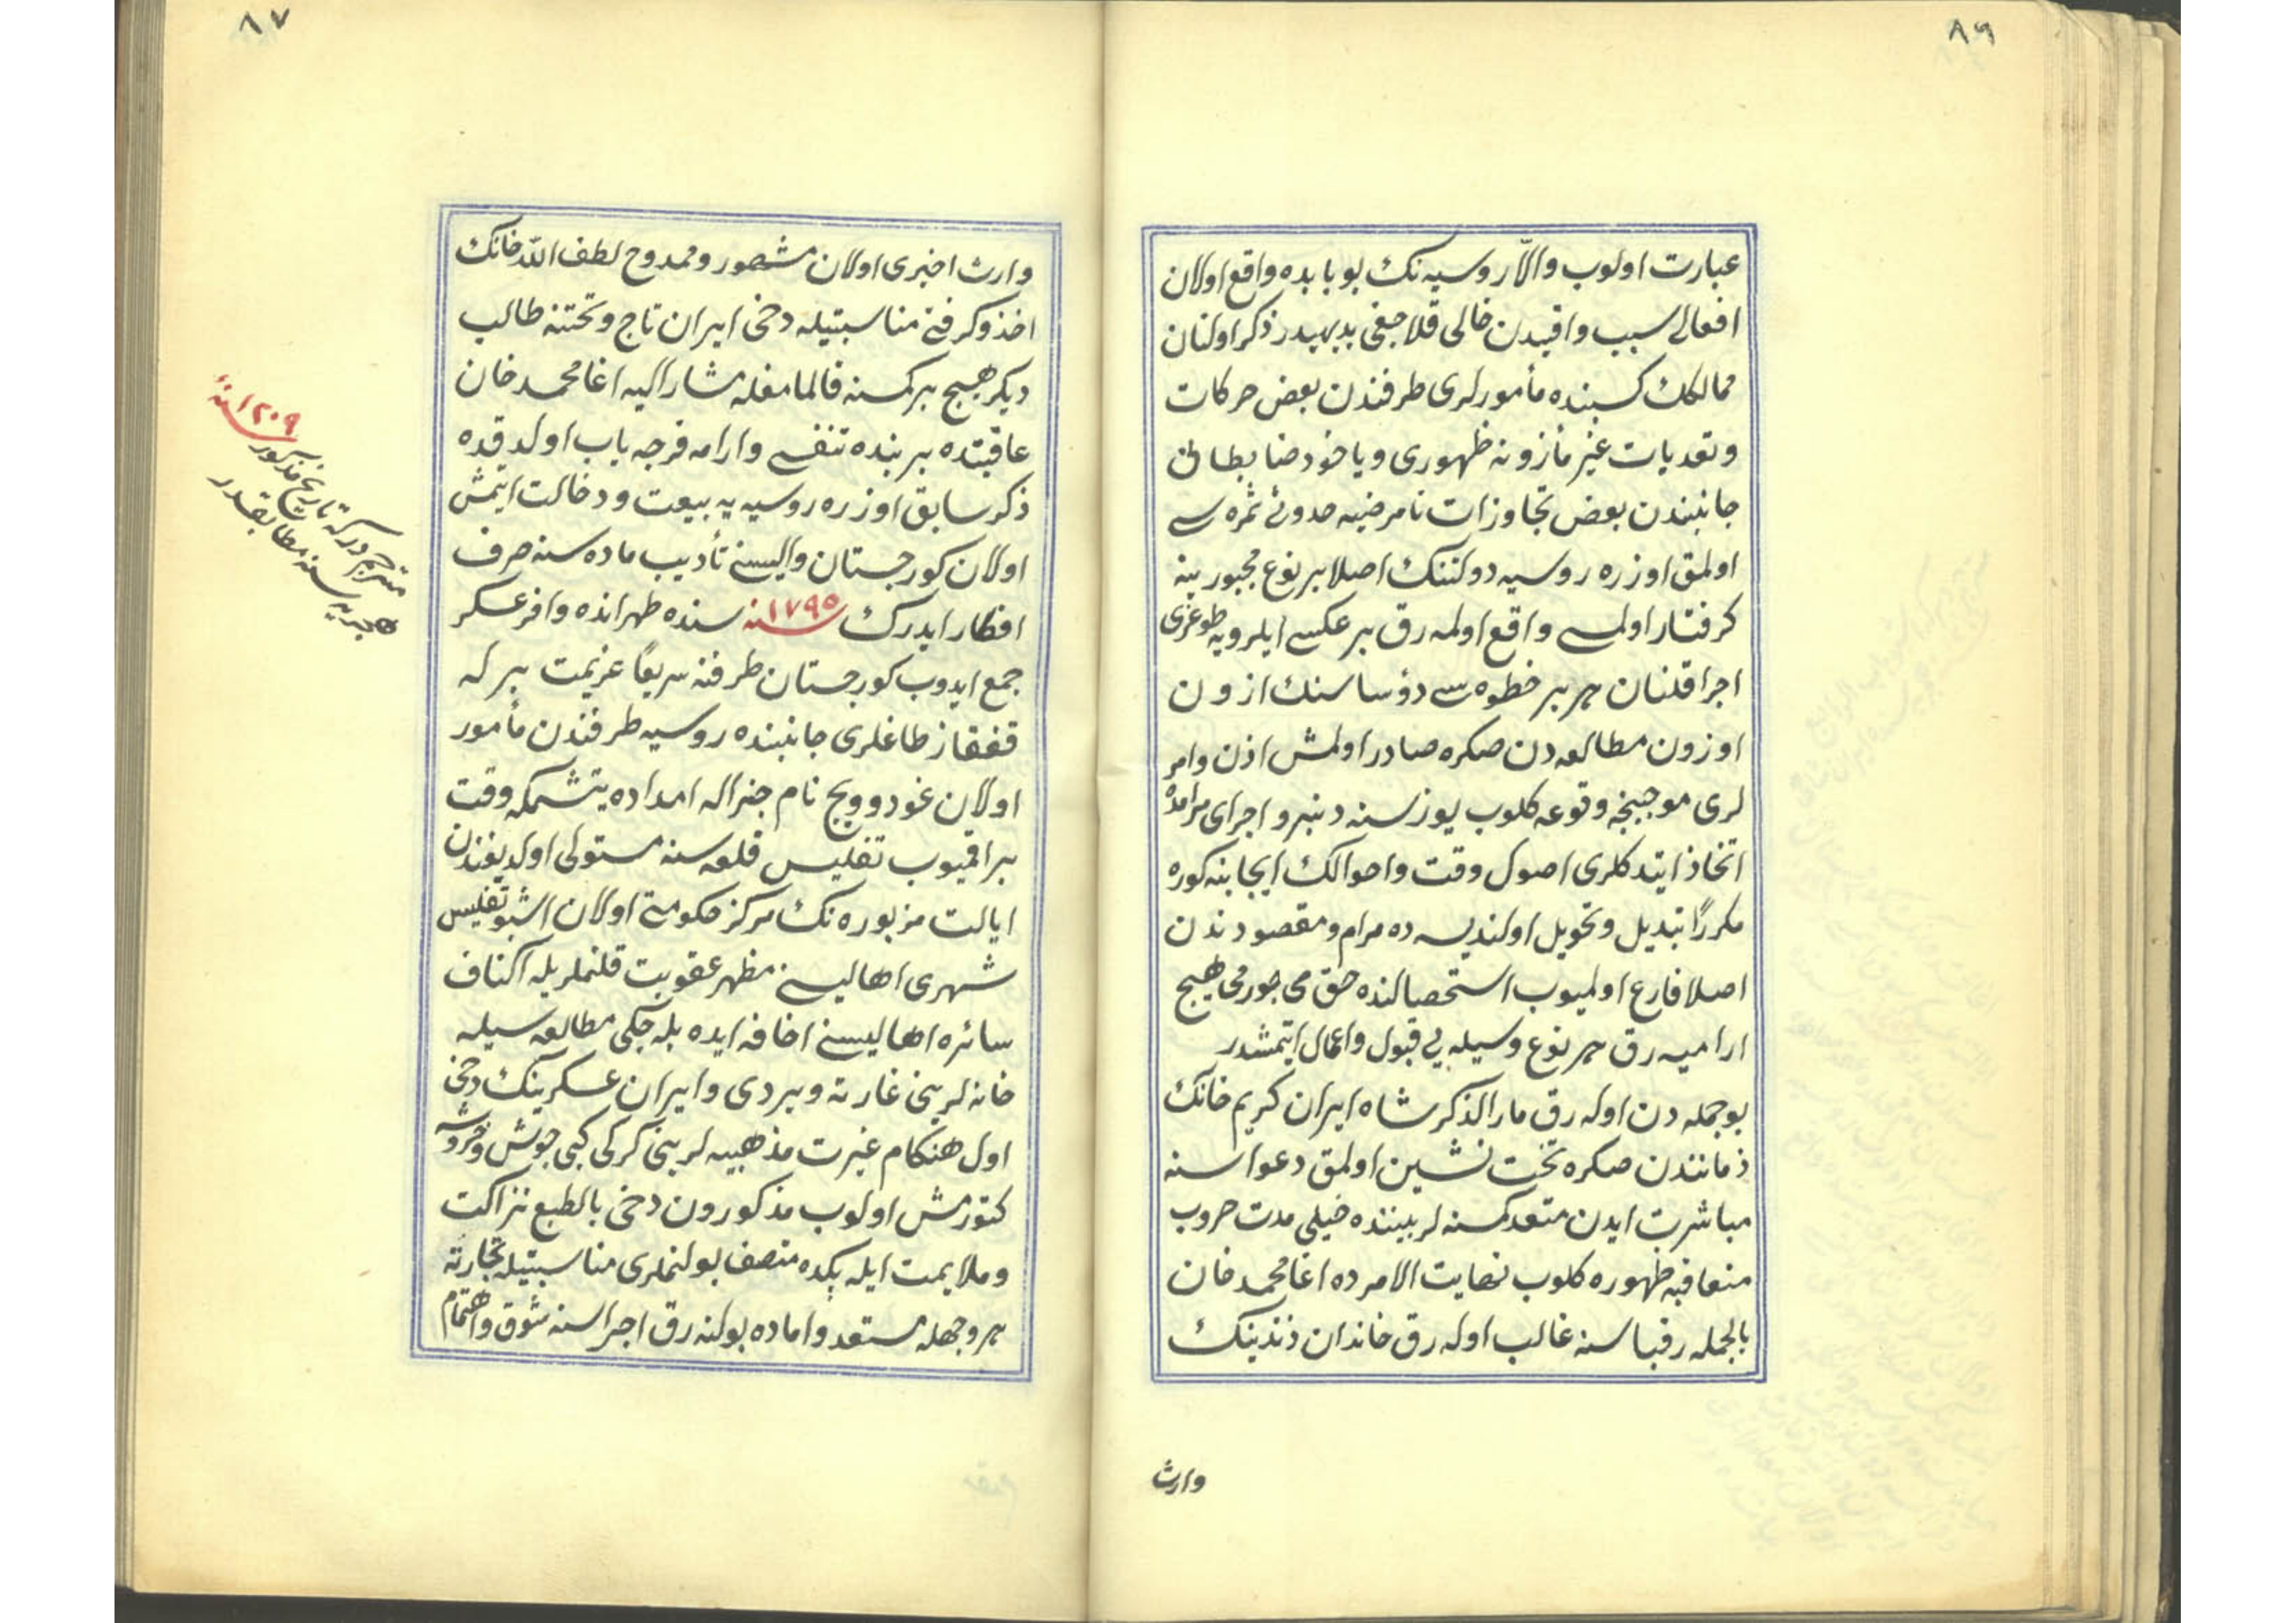 ٨٦
عبارت اولوب والاّ روسیه نك بو بابده واقع اولان
افعالی سبب واقیدن خالی قلاجغی بدیهیدر ذکر اولنان
ممالكك کسبنده مأمورلری طرفندن بعض حرکات
وتعدیات غیر مأزونه ظهوری ویاخود ضابطانی
جانبندن بعض تجاوزات نامرضیه حدوثی ثمره سی
اولمق اوزره روسیه دولتنك اصلا بر نوع مجبوریته
کرفتار اولمسی واقع اولمه رق بر عکس ایلرویه طوغری
اجرا قلنان هر بر خطوه سی رؤساسنك ازون
اوزون مطالعه دن صکره صادر اولمش اذن وامر
لری موجبنجه وقوعه کلوب یوز سنه دنبرو اجرای مرامده
اتخاذ ایتدکلری اصول وقت واحوالك ایجابنه کوره
مکرراً تبدیل وتحویل اولندیسه ده مرام ومقصودندن
اصلا فارغ اولمیوب استحصالنده حق می جور می هیچ
ارامیه رق هر نوع وسیله یی قبول واعمال ایتمشدر
بوجمله دن اوله رق مار الذکر شاه ایران کریم خانك
زمانندن صکره تخت نشین اولمق دعواسنه
مباشرت ایدن متعدد کسنه لر بیننده خیلی مدت حروب
متعاقبه ظهوره کلوب نهایت الامرده اغا محمد خان
بالجمله رقباسنه غالب اوله رق خاندان زندینك
وارث
٨٧
وارث اخیری اولان مشهور وممدوح لطف الله خانك
اخذ وکرفتی مناسبتیله دخی ایران تاج وتختنه طالب
دیکر هیچ بر کمسنه قالمامغله مشار الیه اغا محمد خان
عاقبتده بر بنده تنفسی وارامه فرجه یاب اولدقده
ذکر سابق اوزره روسیه یه بیعت ودخالت ایتمش
اولان کورجستان والیسنی تأدیب ماده سنه صرف
افطار ایدرك ١٧٩٥ سنه سنده طهرانده وافر عسکر
جمع ایدوب کورجستان طرفنه سریعاً عزیمت برله
قفقاز طاغلری جانبنده روسیه طرفندن مأمور
اولان غودوویچ نام جنراله امداده یتشمکه وقت
براقمیوب تفلیس قلعه سنه مستولی اولدیغندن
ایالت مزبوره نك مرکز حکومتی اولان اشبو تفلیس
شهری اهالیسنی مظهر عقوبت قلنملریله اکناف
سائره اهالیسنی اخافه ایده بله جکی مطالعه سیله
خانه لرینی غارته ویردی وایران عسکرینك دخی
اول هنکام غیرت مذهبیه لرینی کرکی کبی جوش وخروشه
کتورمش اولوب مذکورون دخی بالطبع نزاکت
وملایمت ایله پکده متصف بولنملری مناسبتیله تجارته
هر وجهله مستعد واماده بولنه رق اجراسنه شوق واهتمام
مترجم درکه تاریخ مذکور ١٢٠٩ سنهٔ
هجریه سنه مطابقدر